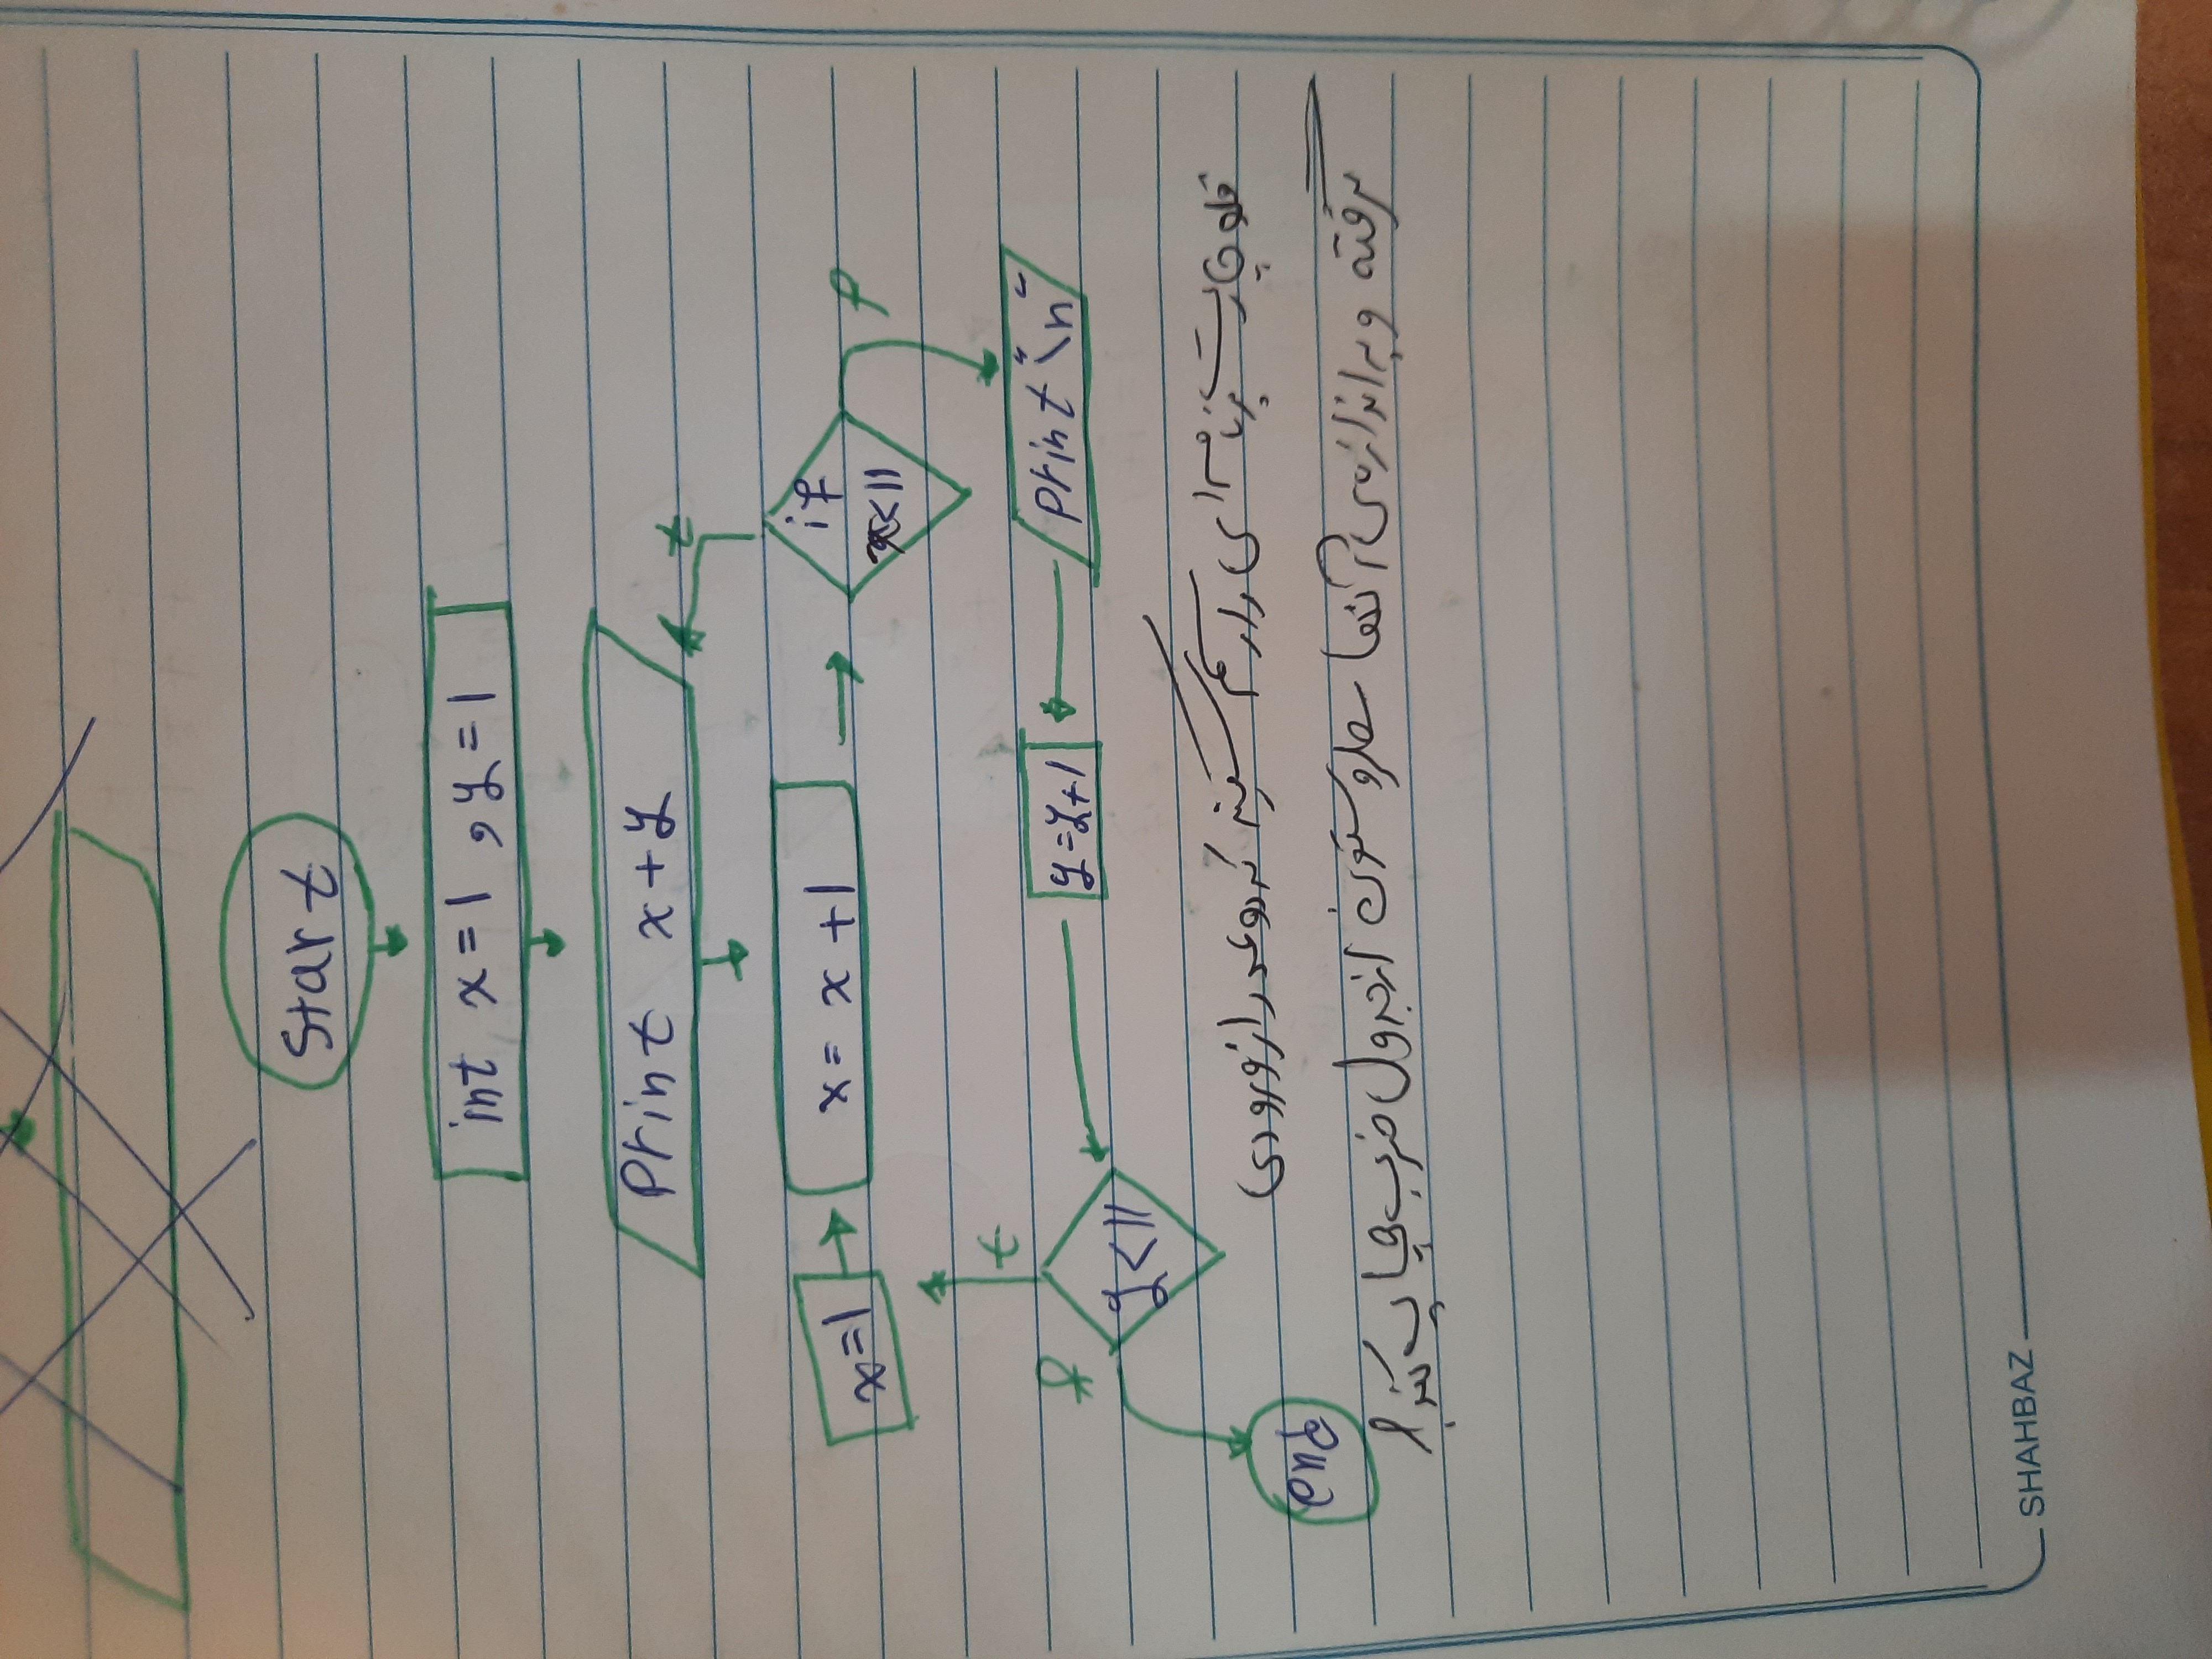 Start
int x=1 , y=1
Print x+y
t
x=1
x= x +1
if
x<11
f
t
f
y=y+1
print "\n"
y<11
فلوچارت برنامه ای را رسم کنید که دو عدد از ورودی
end
گرفته و به اندازه ی آنها سطر و ستون از جدول ضرب چاپ کند؟
SHAHBAZ